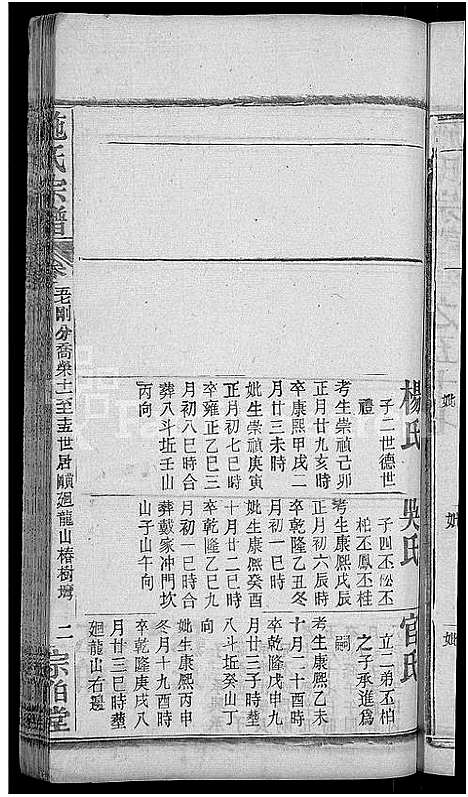 楊氏
子二世德世
禮
考生崇禎己卯
正月廿九亥時
卒康熙甲戌二
月廿三未時
妣生崇禎庚寅
正月初七巳時
卒雍正乙巳三
月初八巳時合
葬八斗坵壬山
丙向
吳氏
子四丕松丕
柏丕鳳丕桂
考生康熙戊辰
正月初六辰時
卒乾隆乙丑冬
月初一巳時
妣生康熙癸酉
十月廿二酉時
卒乾隆乙巳九
月初一巳時合
葬戴家冲門坎
山子山午向
官氏
立二弟丕柏
之子承進為
嗣
考生康熙乙未
十月二十酉時
卒乾隆戊申九
月廿三子時塟
八斗坵癸山丁
向
妣生康熙丙申
冬月十九酉時
卒乾隆庚戌八
月廿三巳時塟
廻龍山右邊
施氏宗譜
卷
五七剛分喬榮士至五世居廻龍山椿樹塆
二
宗伯堂
妣
妣
妣